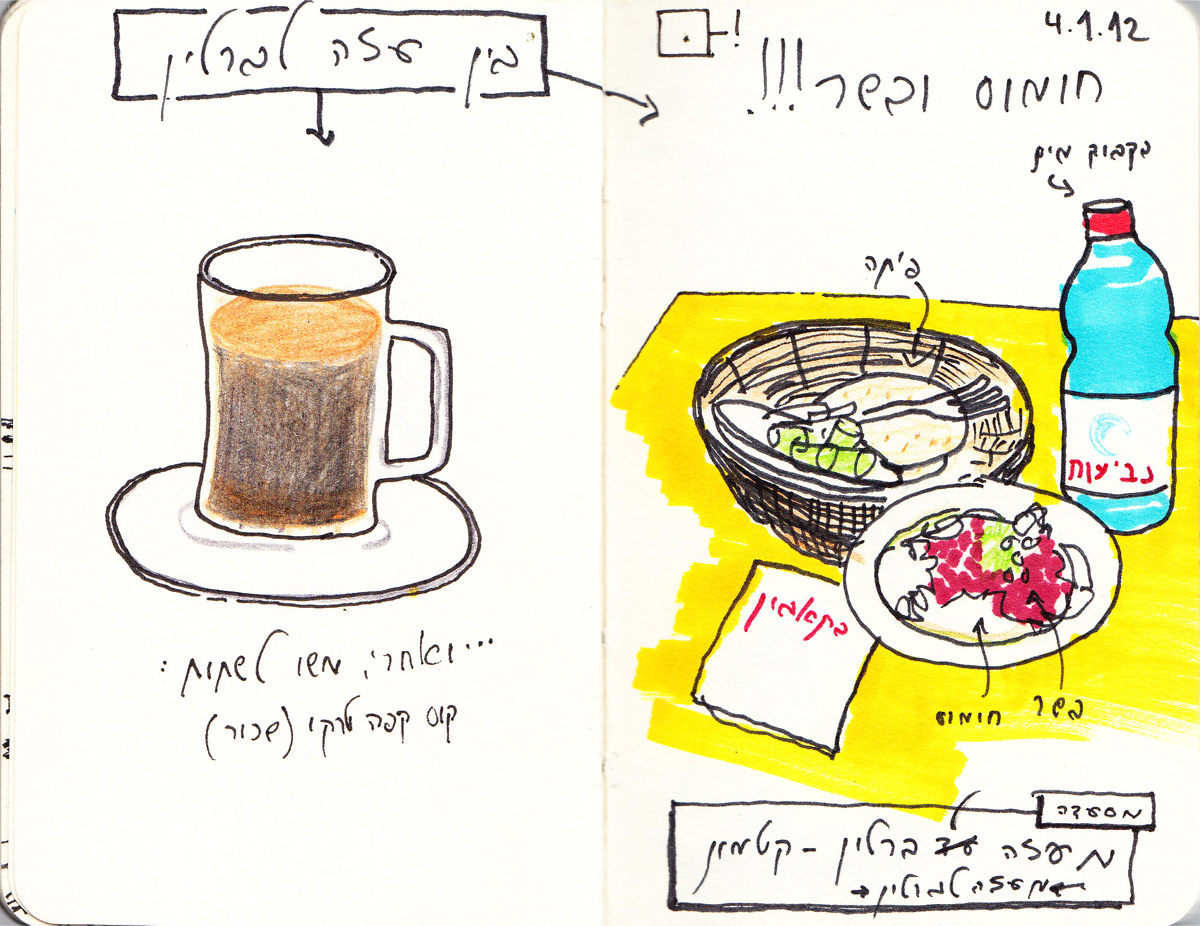 בין עזה לברלין
...ואחרי, משו לשתות:
קוס קפה טורקי (שכור)
4.1.12
!
חומוס ובשר!!!
בקבוק מים
פיתה
נביעות
בתאבין
בשר
חומוס
מסעדה
מעזה עד ברלין – קטמון
מעזה לברלין